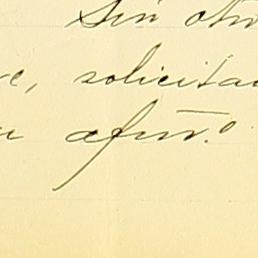 Sin otr
e, solicita
u afmo.